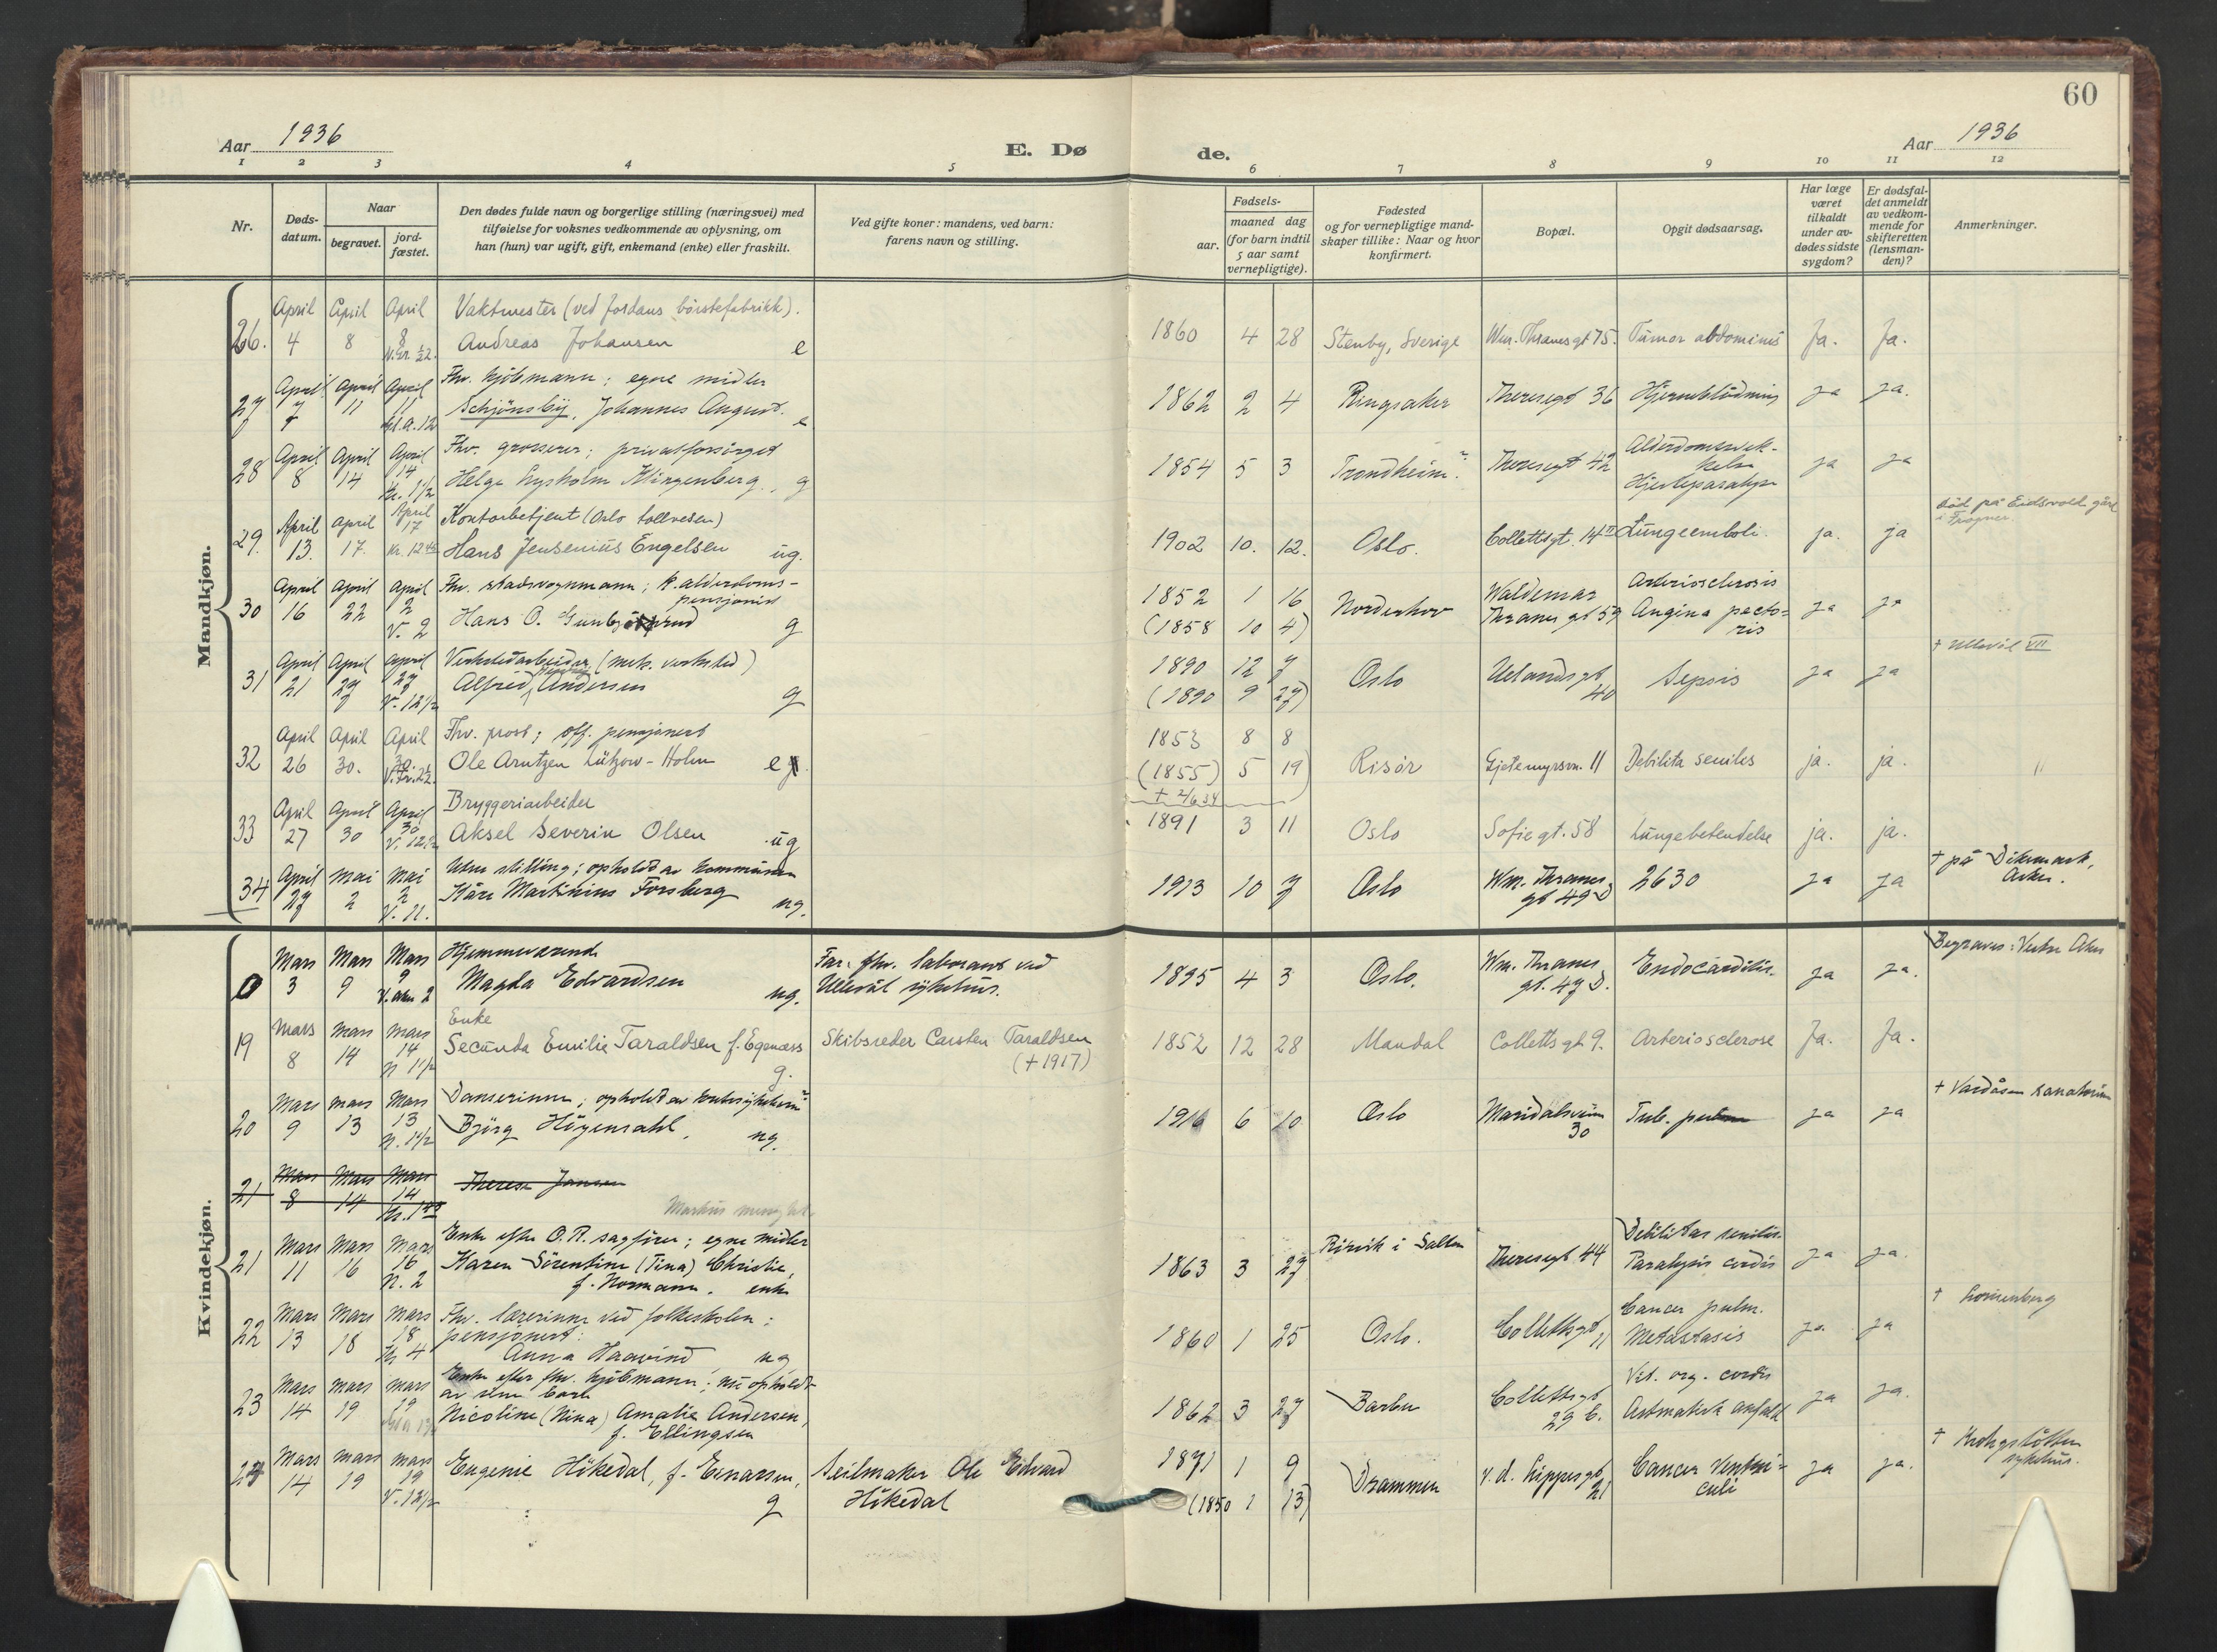 60
Aar 1936
E. Dø
de.
Aar 1936
1 2 3 4 5 6 7 8 9 10 11 12
Nr.
Døds-
datum.
Naar
begravet.
jord-
fæstet.
Den dødes fulde navn og borgerlige stilling (næringsvei) med
tilføielse for voksnes vedkommende av oplysning, om
han (hun) var ugift, gift, enkemand (enke) eller fraskilt.
Ved gifte koner: mandens, ved barn:
farens navn og stilling.
Fødsels-
aar.
maaned dag
(for barn indtil
5 aar samt
vernepligtige).
Fødested
og for vernepligtige mand-
skaper tillike: Naar og hvor
konfirmert.
Bopæl.
Opgit dødsaarsag.
Har læge
været
tilkaldt
under av-
dødes sidste
sygdom?
Er dødsfal-
det anmeldt
av vedkom-
mende for
skifteretten
(lensman-
den)?
Anmerkninger.
Mandkjøn.
April April April Vaktmester (ved Jordans børstefabrikk).
26. 4 8 8 Andreas Johansen e 1860 4 28 Stenby, Sverige Wm. Thranesgt 75. Tumor abdominis Ja. Ja.
April April April Fhv. kjøbmann; egne midler
27 7 11 11 Schjønsby, Johannes August. e 1862 2 4 Ringsaker Theresegt 36 Hjerneblødning ja ja.
April April April Fhv. grosserer; privatforsørget
28 8 14 14 Kr. 1 1/2 Helge Lysholm Klingenberg, g 1854 5 3 Trondheim Theresegt 42 Alderdomssvek-
kelse
Hjerteparalyse ja ja
April April April Kontorbetjent (Oslo tollvesen)
29. 13. 17. 17 Kr. 12 45 Hans Jensenius Engelsen ug. 1902 10. 12. Oslo. Collettsgt. 14 II Lungeemboli. ja. ja
død på Eidsvold gård
i Frogner.
April April April Fhv. stadsvognmann; k. alderdoms-
pensjonist
30 16 22 2 V. 2 Hans O. g 1852 1 16
(1858 10 4) Norderhov Waldemar
Thranes gt 59 Arteriosclerosis
Angina pecto-
ris ja ja
April April April Verkstedarbeider (mek. verksted)
31 21 27 27 V. 12 1/2 Alfred Andersen g 1890 12 7
(1890 9 27) Oslo Uelandsgt
40 Sepsis ja ja
† Ullevål VII
April April April Fhv. prost; off. pensjonert
32 26 30. 30. Ole Arntzen Lützow-Holm e 1853 8 8
(1855) 5 19)
† 2/6 34 Risør Gjetemyrsvn. 11 Debilitas seniles ja. ja. "
April April April Bryggeriarbeider
33 27 30 30 Aksel Severin Olsen ug 1891 3 11 Oslo Sofiegt. 58 Lungebetendelse ja. ja.
April mai mai Uten stilling; opholdt av kommunen
34 27 2 2 V. 11. Kåre Martinius Forsberg ug. 1913 10 7 Oslo Wm. Thranes
gt 49 D 2630 ja ja
† på Dikemark,
Asker.
Kvindekjøn.
Mars Mars Mars Hjemmeværende
0 3 9 9 V. aker 2 Magda Edvardsen ug. Far: fhv. laborant ved
Ullevål sykehus. 1895 4 3 Oslo. Wm. Thranes
gt. 47 D. Endocarditis. ja ja.
Begraves: Vestre Aker
Mars Mars Mars Enke
19 8 14 14 N 1 1/2 Secunda Emilie Taraldsen f. Egenæss g. Skibsreder Carsten Taraldsen
(†1917) 1852 12 28 Mandal Colletts gt 9. Arteriosclerose Ja. Ja.
Mars mars Mars Danserinne; opholdt av
20 9 13 13 N. 1 1/2 Bjørg Høgensahl, ug. 1916 6 10 Oslo Maridalsveien
30 Tub. pulm ja ja
† Vardåsen sanatorium
Mars Mars Mars
21 8 14 14 Kr. 1 45 Therese Jansen
Markus menighet
Mars Mars Mars Enke efter O.R. sagfører; egne midler
21 11 16 16 N. 2 Karen Sørentine (Tina) Christie,
f. Normann. enke 1863 3 27 i Salten Theresegt 44 Debilitas senilis.
Paralysis cordis ja ja.
Mars Mars Mars Fhv. lærerinne ved folkeskolen;
22 13 18 18 Kr 4 pensjonert:
Anna Haavind ug 1860 1 25 Oslo. Collettsgt
11 Cancer pulm.
Metastasis ja ja
† Lovisenberg
Mars mars mars Enke efter fhv. kjøbmann; nu opholdt
av sine barn
23 14 19 19 Nicoline (Nina) Amalie Andersen,
f. Ellingsen 1862 3 27 Barbu Collettsgt
29 b. Vit. org. cordis
Astmatisk anfald ja ja.
Mars mars mars
24 14 19 19 V. 12 1/2 Eugenie Høkedal, f. Einarsen, g Seilmaker Ole Edvard
Høkedal 1871 1 9
(1850 1 13) Drammen v. d. Lippesgt
21 Cancer ventri-
culi ja ja.
† Krohgstøtten
sykehus.